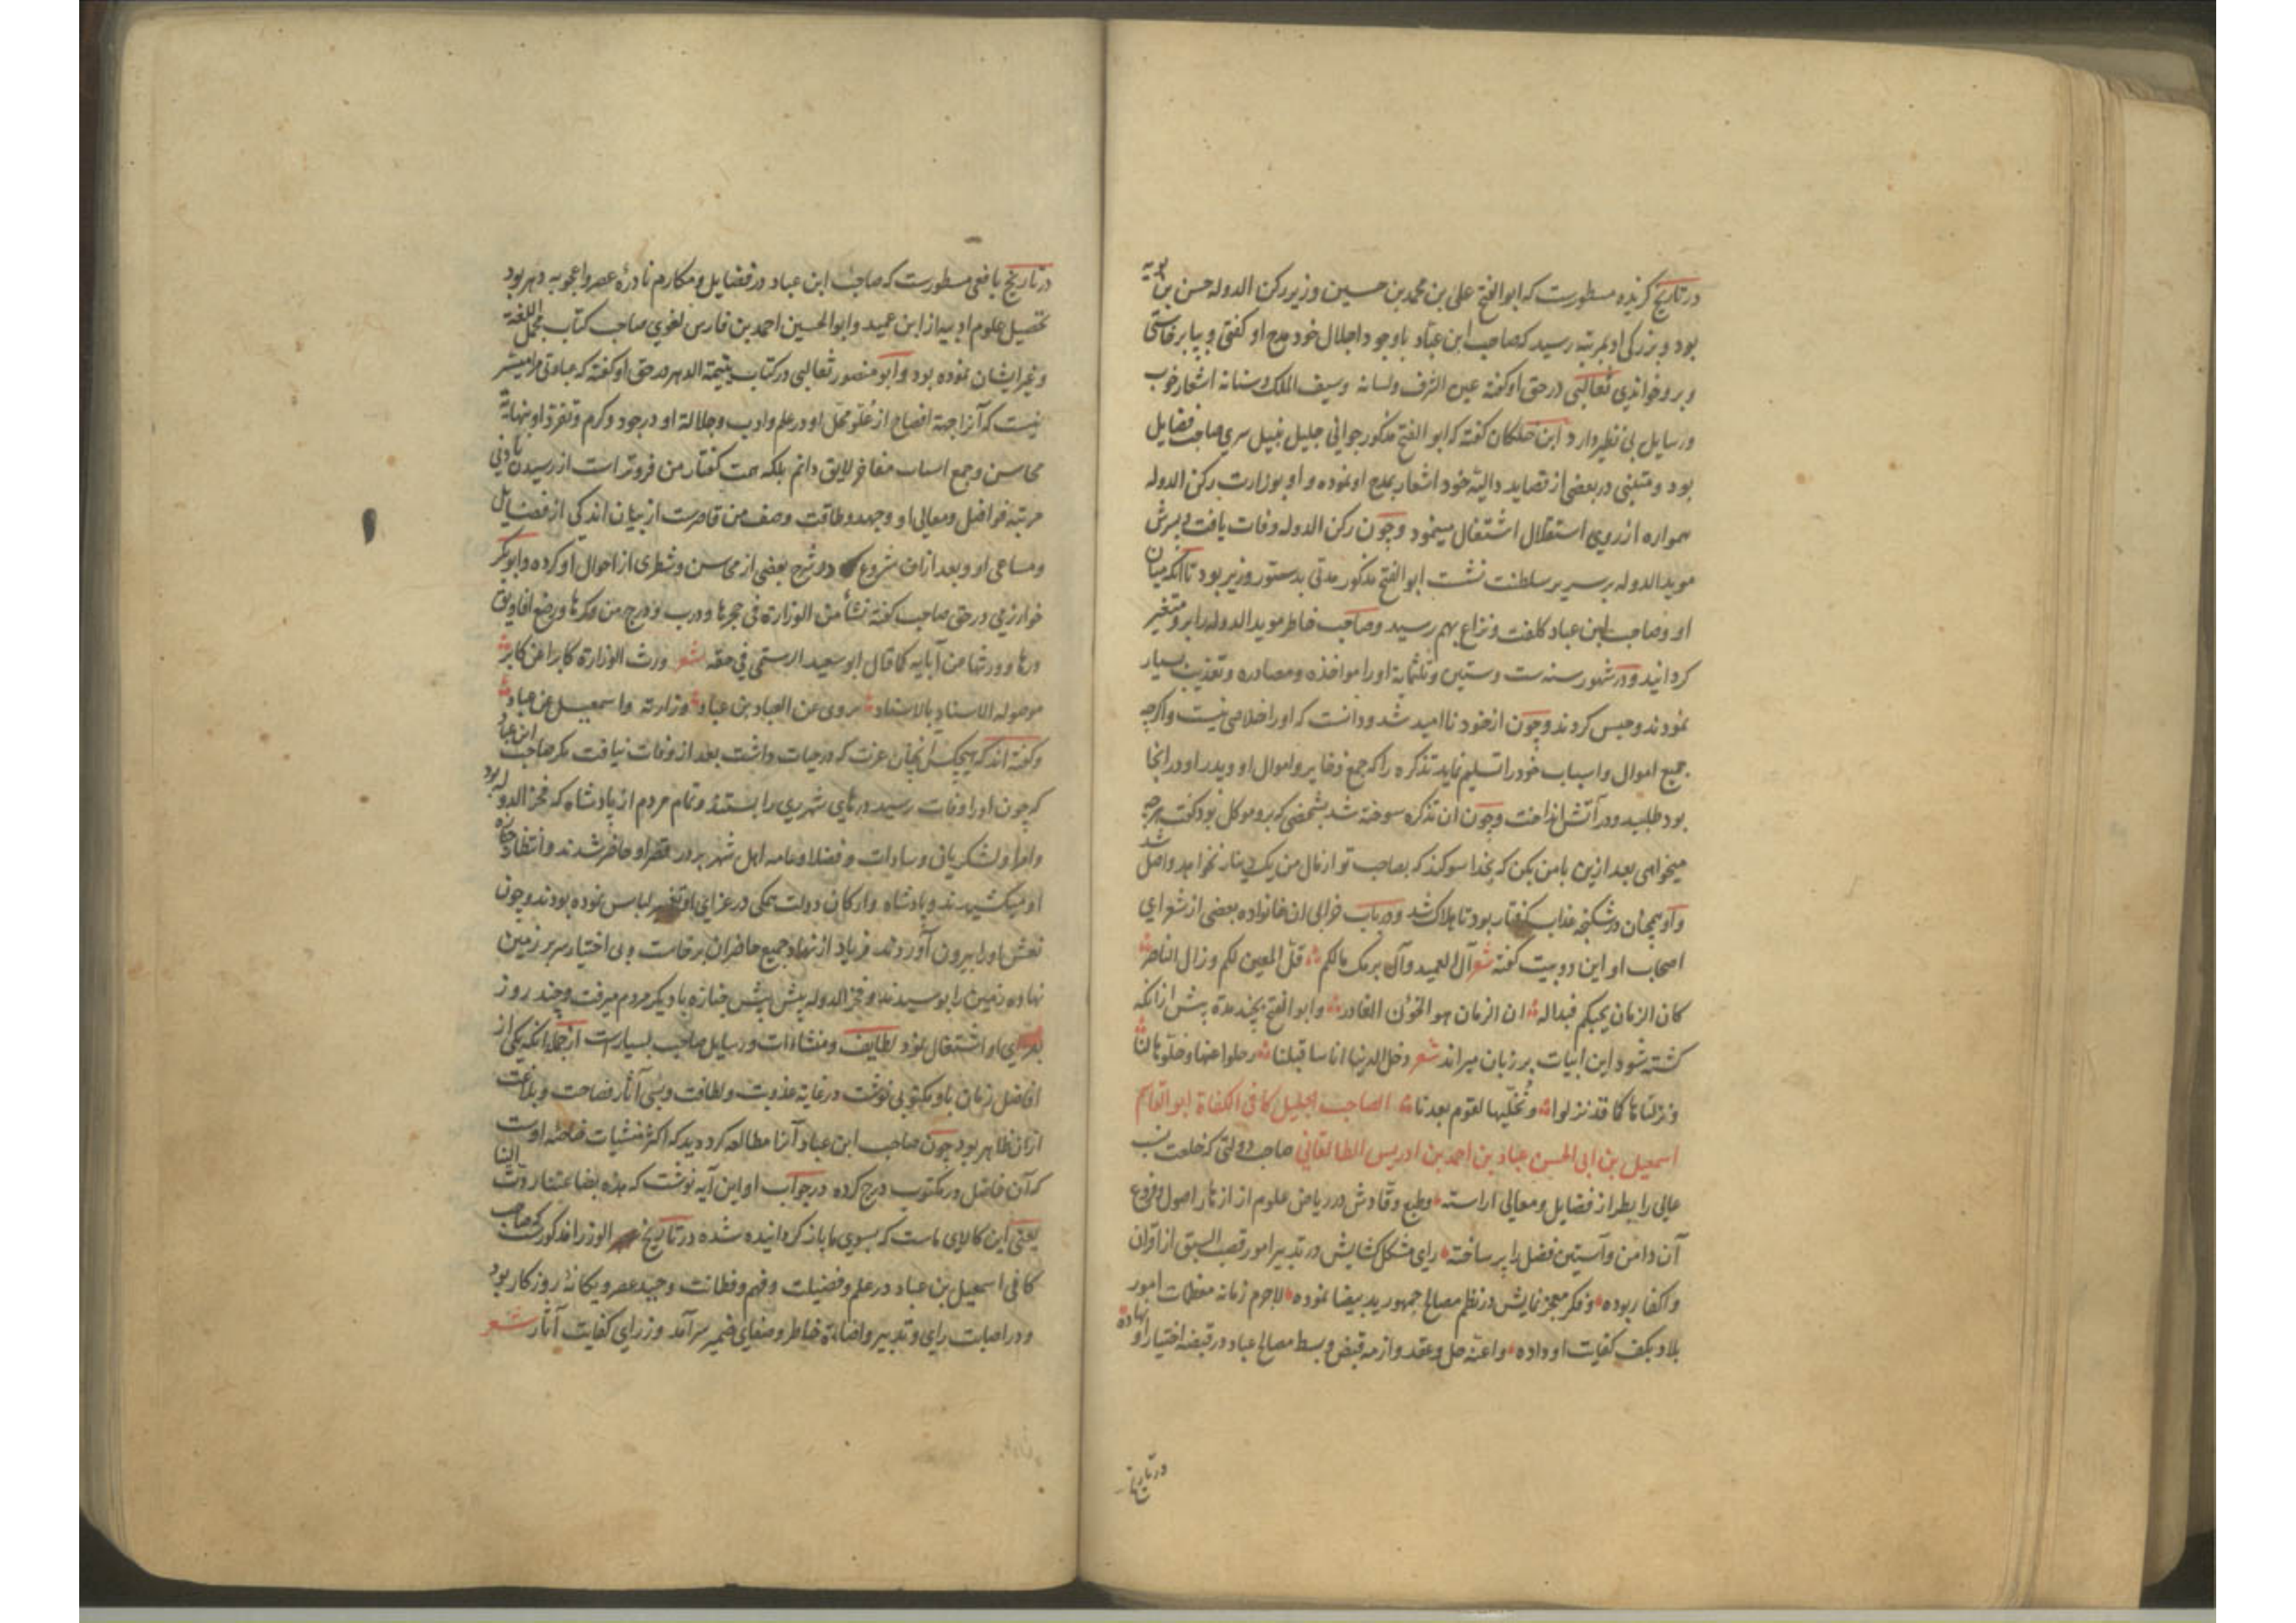 در تاریخ گزیده مسطورست که ابوالفتح علی بن محمد بن حسین وزیر رکن الدوله حسن بن بویه
بود و بزرگی او بمرتبه رسید که صاحب ابن عباد باوجود اجلال خود مدح او گفتی و بپا برخاستی
و برو خواندی ثعالبی در حق او گفته عین الشرف ولسانه وسیف الملک وسنانه اشعار خوب
ورسایل بی نظیر دارد ابن خلکان گفته که ابو الفتح مذکور جوانی جلیل نبیل سری صاحب فضایل
بود ومتنبی در بعضی از قصاید دالیهٔ خود اشعار بمدح او نموده و او بوزارت رکن الدوله
همواره از روی استقلال اشتغال مینمود وچون رکن الدوله وفات یافت و پسرش
موید الدوله بر سریر سلطنت نشست ابو الفتح مذکور مدتی بدستور وزیر بود تا آنکه میان
او وصاحب ابن عباد کلفت ونزاع بهم رسید وصاحب خاطر موید الدوله را برو متغیر
کردانید ودر شهور سنه ست وستین وثلثمایة اورا مواخذه ومصادره وتعذیب بسیار
نمودند وحبس کردند وچون از خود ناامید شد ودانست که اورا خلاصی نیست واکرچه
جمیع اموال واسباب خودرا تسلیم نماید تذکره را که جمع ذخایر واموال او وپدر او در انجا
بود طلبید ودر آتش انداخت وچون ان تذکره سوخته شد بشخصی که برو موکل بود کفت هرچه
میخواهی بعد ازین بامن بکن که بخدا سوکند که بصاحب تو از مال من یک دینار نخواهد واصل شد
واو همچنان در شکنجه عذاب کرفتار بود تا هلاک شد ودر باب خرابی ان خانواده بعضی از شعرای
اصحاب او این دو بیت کفته شعر آل العمید وآل برمک مالکم قل المعین لکم وزال الناصر
کان الزمان یحبکم فبدا له ان الزمان هو الخؤن الغادر وابو الفتح بچند مدة پیش از انکه
کشته شود این ابیات بر زبان میراند شعر دخل الدنیا اناسا قبلنا رحلوا عنها وخلوها لنا
ونزلناها کما قد نزلوا ونخلیها لقوم بعدنا الصاحب الجلیل کافی الکفاة ابو القاسم
اسمعیل بن ابی الحسن عباد بن احمد بن ادریس الطالقانی صاحب دولتی که خلعت نسب
عالی را بطراز فضایل ومعالی اراسته وطبع وقادش در ریاض علوم از ازهار اصول وفروع
آن دامن وآستین فضل را پر ساخته رای مشکل کشایش در تدبیر امور قصب السبق از اقران
واکفا ربوده وفکر معجز نمایش در نظم مصالح جمهور ید بیضا نموده لاجرم زمانه معظمات امور
بلاد بکف کفایت او داده واعنه حل وعقد وازمه قبض وبسط مصالح عباد در قبضه اختیار او نهاده
در تاریخ
در تاریخ یافعی مسطورست که صاحب ابن عباد در فضایل ومکارم نادرهٔ عصر واعجوبه دهر بود
تحصیل علوم ادبیه از ابن عمید وابو الحسین احمد بن فارس لغوی صاحب کتاب مجمل اللغة
وغیر ایشان نموده بود وابو منصور ثعالبی در کتاب یتیمة الدهر در حق او کفته که عبارتی مرا میسر
نیست که آنرا جهة افصاح از علو محل او در علم وادب وجلالة او در جود وکرم وتفرد او بنهایة
محاسن وجمع اسباب مفاخر لایق دانم بلکه همت کفتار من فروتر است از رسیدن بادنی
مرتبه فواضل ومعالی او وجهد وطاقت وصف من قاصرست از بیان اندکی از فضایل
ومساعی او وبعد ازان شروع در شرح بعضی از محاسن وشطری از احوال او کرده وابو بکر
خوارزمی در حق صاحب کفته نشأ من الوزارة فی حجرها ودرب ودرج من وکرها ورضع افاویق
درها وورثها من آبایه کما قال ابو سعید الرستمی فی حقه شعر ورث الوزارة کابرا عن کابر
موصولة الاسناد بالاسناد یروی عن العباد بن عباد وزارته واسمعیل عن عباد
وکفته اند که هیچکس انچنان عزت که در حیات داشت بعد از وفات نیافت مکر صاحب ابن عباد
که چون اورا وفات رسید درهای شهر ری را بستند وتمام مردم از پادشاه که فخر الدوله بود
وامرا ولشکریان وسادات وفضلا وعامه اهل شهر بر در قصر او حاضر شدند وانتظار جنازه
او میکشیدند وپادشاه وارکان دولت همکی در عزای او تغییر لباس نموده بودند وچون
نعش اورا بیرون آوردند فریاد از نهاد جمیع حاضران برخاست وبی اختیار سر بر زمین
نهاده زمین را بوسیدند وفخر الدوله پیش پیش جنازه با دیکر مردم میرفت وچند روز
بعزای او اشتغال نمود لطایف ومنشاءات ورسایل صاحب بسیارست از جمله آنکه یکی از
افاضل زمان باو مکتوبی نوشت در غایة عذوبت ولطافت وبسی آثار فصاحت وبلاغت
ازان ظاهر بود چون صاحب ابن عباد آنرا مطالعه کرد دید که اکثر منشیات خاصهٔ اوست
که آن فاضل در مکتوب درج کرده در جواب او این آیه نوشت که هذه بضاعتنا ردت الینا
یعنی این کالای ماست که بسوی ما باز کردانیده شده در تاریخ الوزرا مذکورست که صاحب
کافی اسمعیل بن عباد در علم وفضیلت وفهم وفطانت وحید عصر ویکانهٔ روزکار بود
ودر اصابت رای وتدبیر واضاءة خاطر وصفای ضمیر سرآمد وزرای کفایت آثار شعر